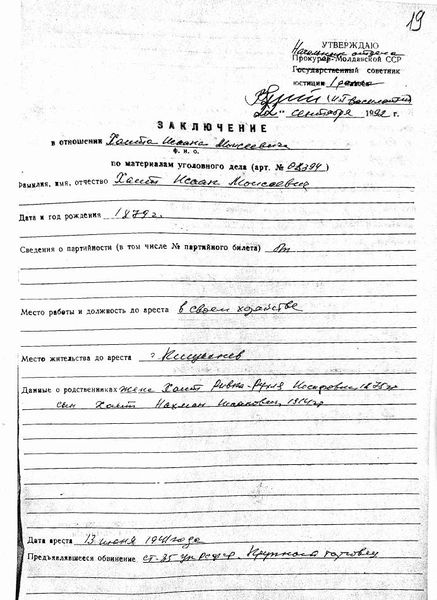 19
УТВЕРЖДАЮ
Начальник отдела
Прокурор Молдавской ССР
Государственный советник
юстиции 1 ранга
22" сентября 199 г.
ЗАКЛЮЧЕНИЕ
в отношении Хаита Исаака Моисеевича
ф. и. о.
по материалам уголовного дела (арт. №
Фамилия, имя, отчество Хаит Исаак Моисеевич
Дата и год рождения 1879г.
Сведения о партийности (в том числе № партийного билета) б/п
Место работы и должность до ареста в своем хозяйстве
Место жительства до ареста г Кишинев
Данные о родственниках жена Хаит Ривка-Рухля Иосифовна, 1875гр
сын Хаит Нахман Исаакович, 1914гр
Дата ареста 13 июня 1941 года
Предъявлявшееся обвинение ст. 35 УК РСФСР. Крупный торговец